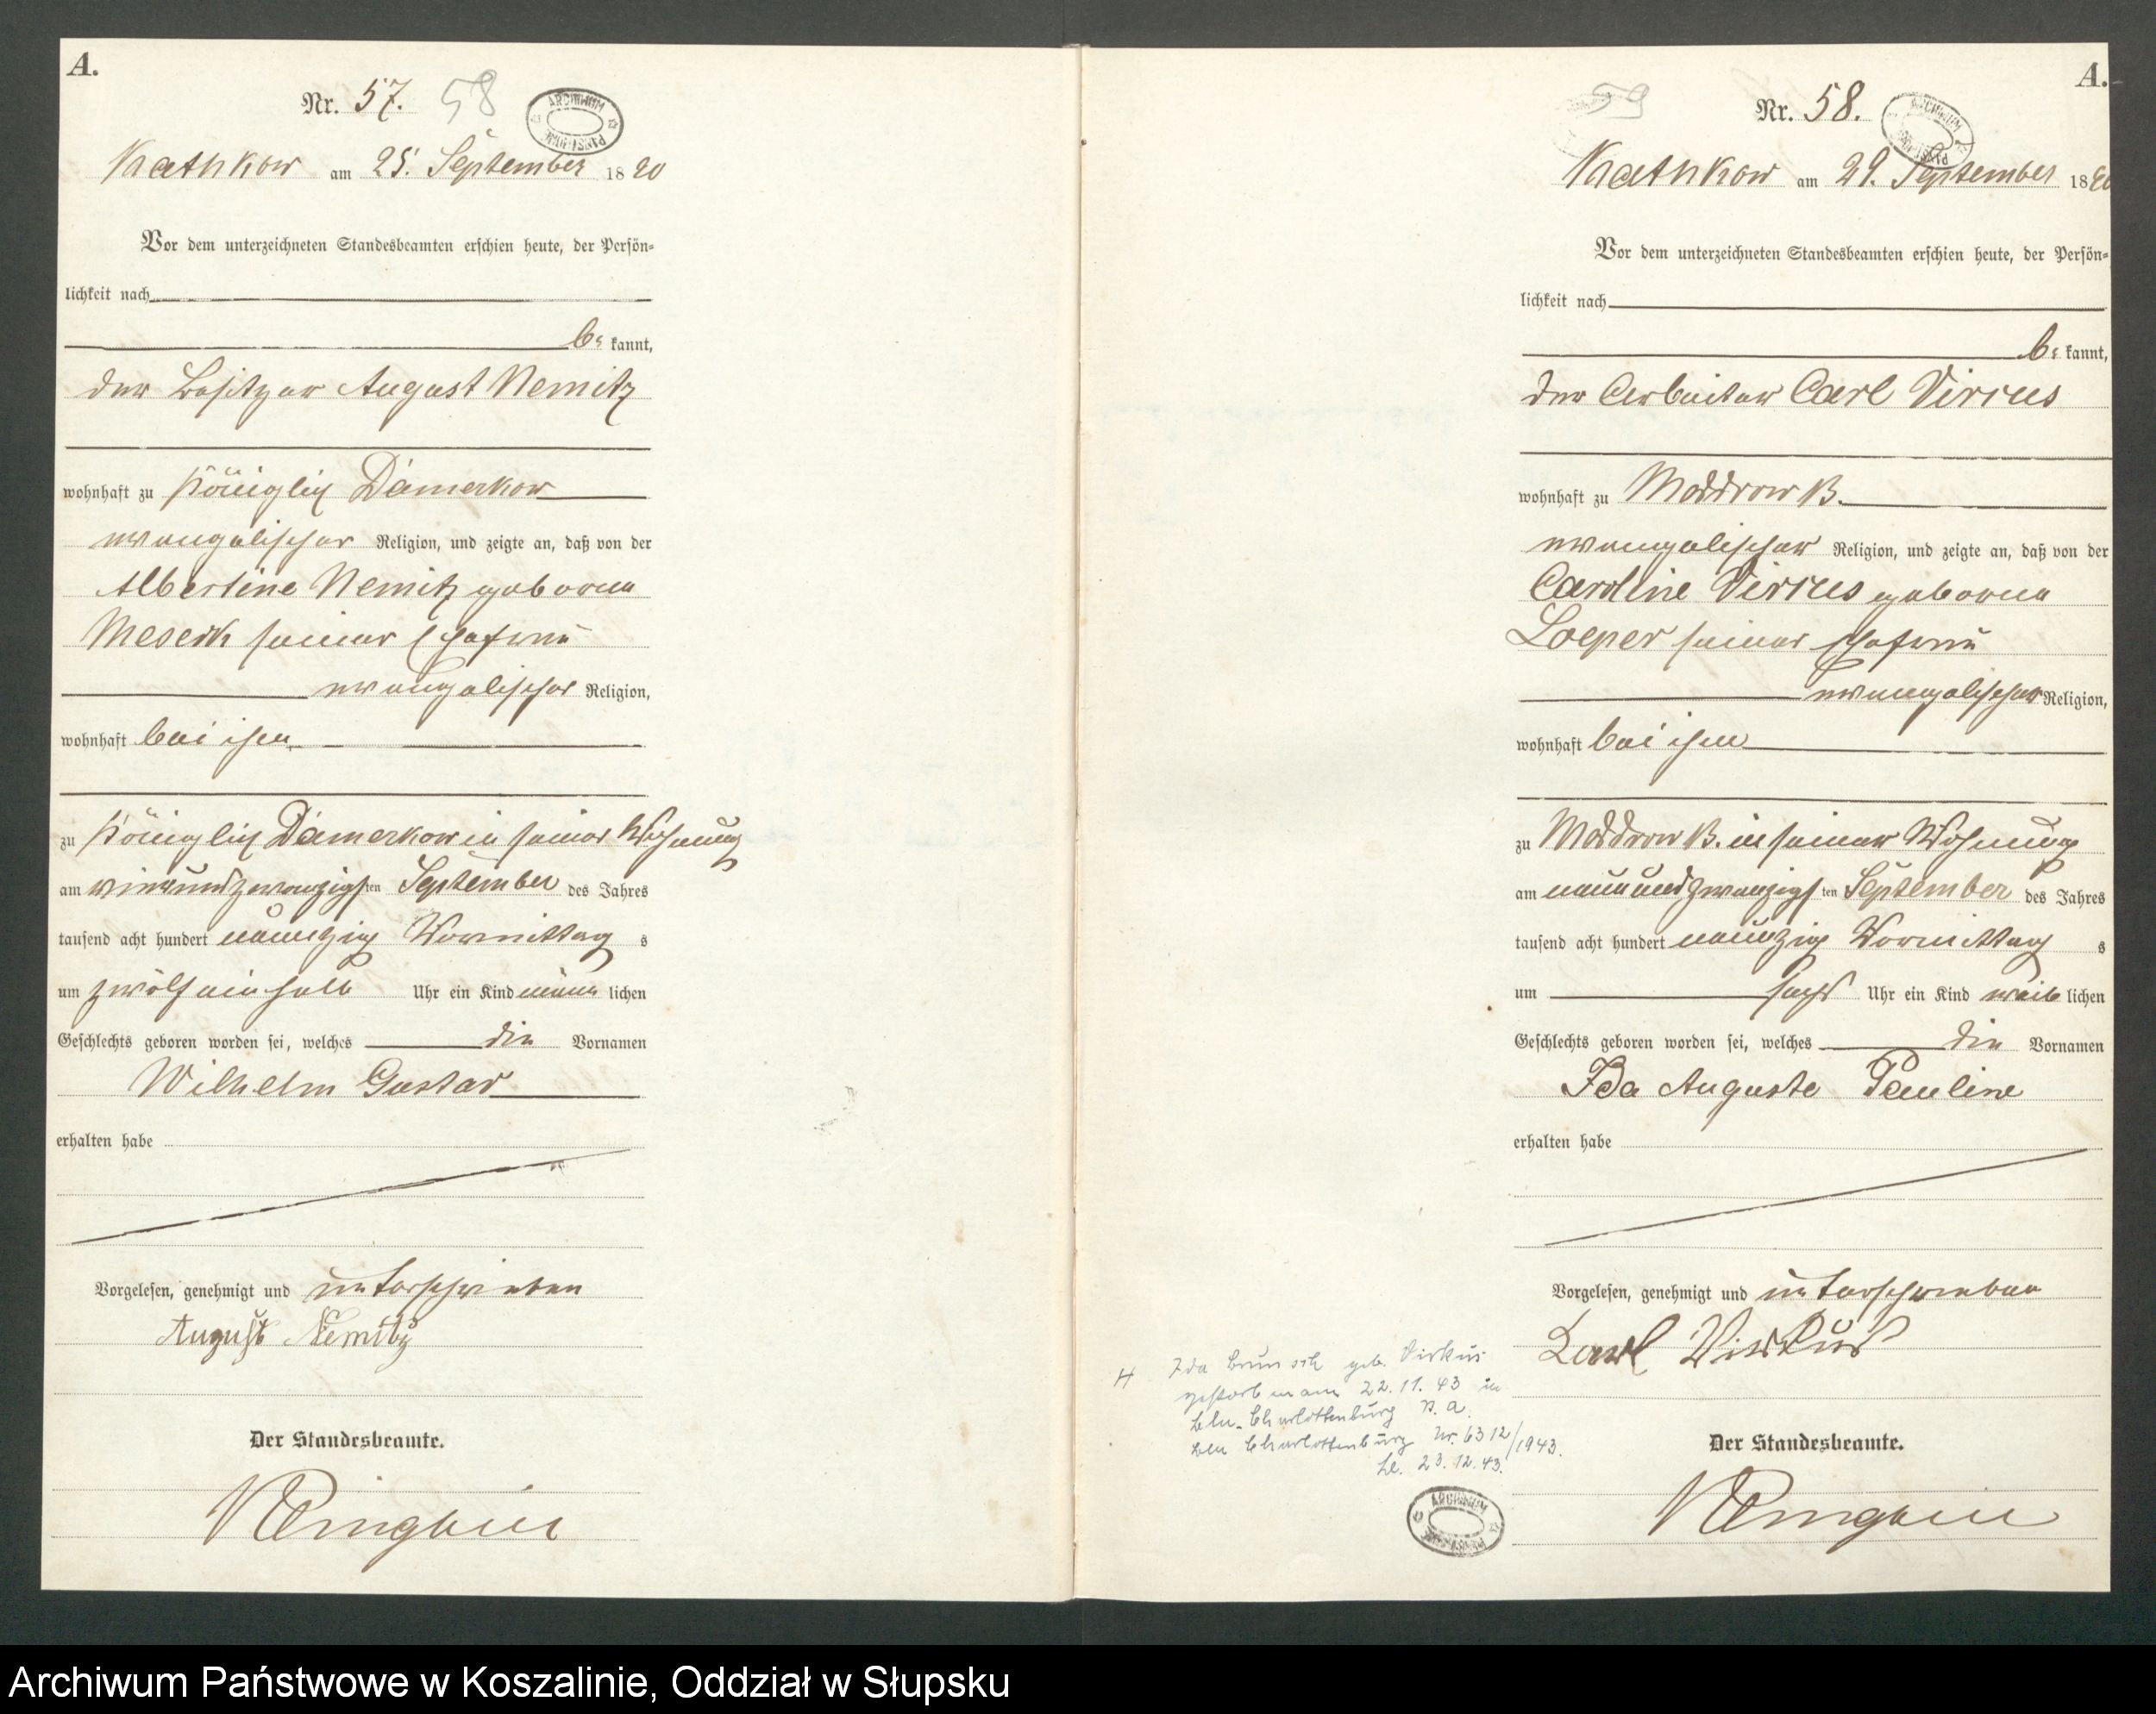 A.
Nr. 57. 58
ARCHIWUM PAŃSTWOWE
Kathkow am 25. September 1890
Vor dem unterzeichneten Standesbeamten erschien heute, der Persön-
lichkeit nach
be kannt,
der Besitzer August Nemitz
wohnhaft zu Königlich Damerkow
evangelischer Religion, und zeigte an, daß von der
Albertine Nemitz geborene
seiner Ehefrau
evangelischer Religion,
wohnhaft bei ihm
zu Königlich Damerkow in seiner Wohnung
am vierundzwanzigsten September des Jahres
tausend acht hundert neunzig Vormittags
um zwölfeinhalb Uhr ein Kind männlichen
Geschlechts geboren worden sei, welches die Vornamen
Wilhelm Gustav
erhalten habe
Vorgelesen, genehmigt und unterschrieben
August Nemitz
Der Standesbeamte.
A.
59 Nr. 58.
ARCHIWUM PAŃSTWOWE
Kathkow am 29. September 1890
Vor dem unterzeichneten Standesbeamten erschien heute, der Persön-
lichkeit nach
be kannt,
der Arbeiter Carl Vircus
wohnhaft zu Moddrow B.
evangelischer Religion, und zeigte an, daß von der
Caroline Vircus geborene
Loeper seiner Ehefrau
evangelischer Religion,
wohnhaft bei ihm
zu Moddrow B. in seiner Wohnung
am neunundzwanzigsten September des Jahres
tausend acht hundert neunzig Vormittags
um sechs Uhr ein Kind weiblichen
Geschlechts geboren worden sei, welches die Vornamen
Ida Auguste Pauline
erhalten habe
Vorgelesen, genehmigt und unterschrieben
Karl Virkus
Der Standesbeamte.
Ida geb. Virkus
gestorben am 22.11.43 in
Bln.-Charlottenburg St. A.
Bln Charlottenburg Nr. 6312/1943.
23.12.43.
ARCHIWUM PAŃSTWOWE
Archiwum Państwowe w Koszalinie, Oddział w Słupsku